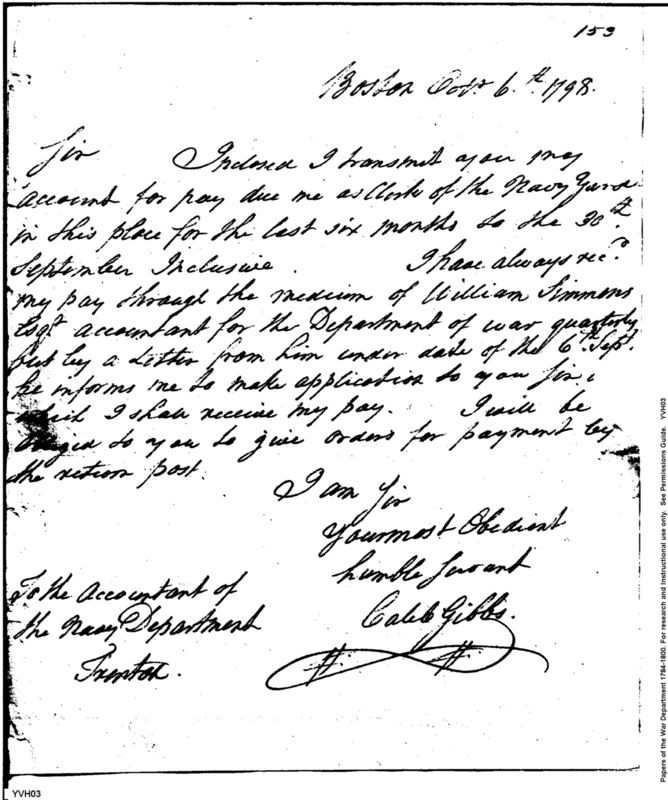 153
Boston Octr. 6th. 1798.
Sir Inclosed I transmit you my
account for pay due me as Clerk of the Navy Yard
in this place for the last six months to the 30th.
September Inclusive. I have always recd.
my pay through the medium of William Simmons
Esqr. accountant for the Department of war quarterly
but by a Letter from him under date of the 6th. Sept.
he informs me to make application to you Sir,
which I shall receive my pay. I will be
obliged to you to give orders for payment by
the return post.
I am Sir
Your most Obedient
humble Servant
Caleb Gibbs.
To the Accountant of
the Navy Department
Trenton.
YVH03
Papers of the War Department 1784-1800. For research and Instructional use only. See Permissions Guide. YVH03